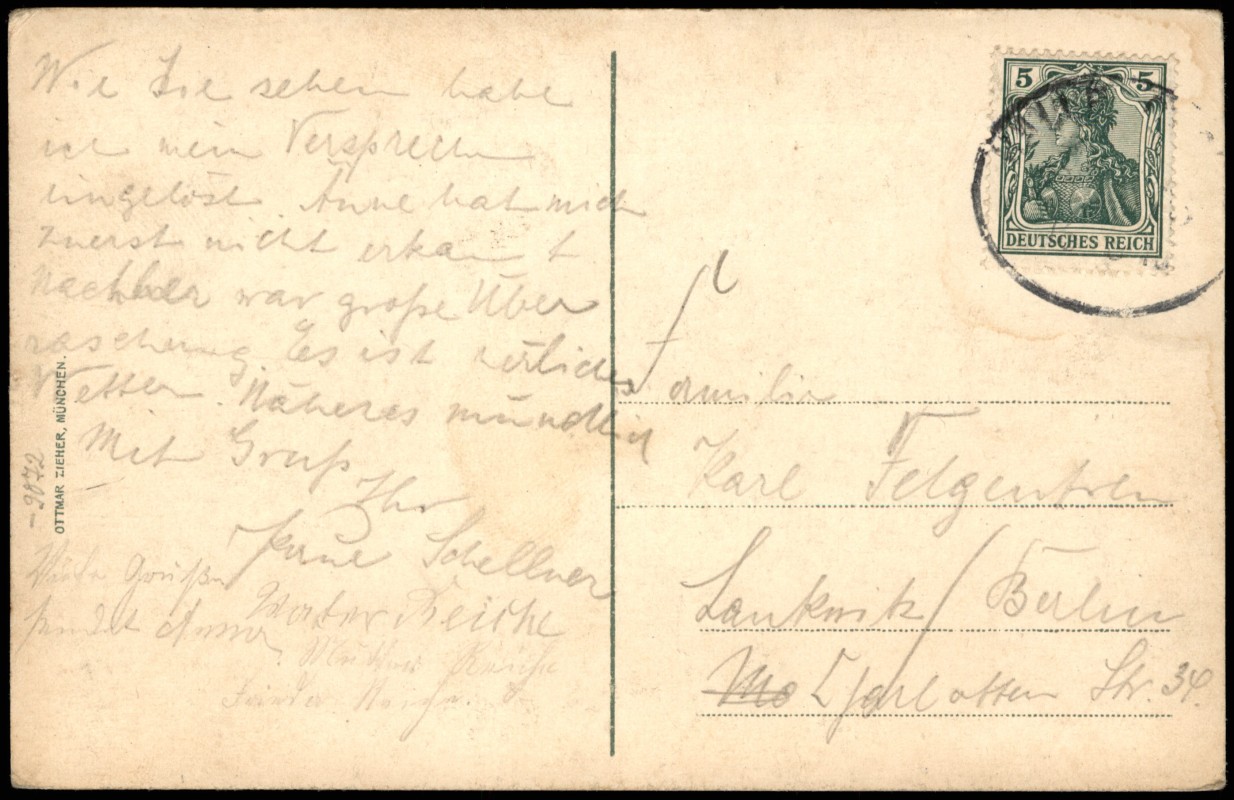 Wie Sie sehen habe
ich mein Versprechen
eingelöst. Anne hat mich
zuerst nicht erkannt
Nachher war große Über
raschung. Es ist
Wetter. Näheres mündlich
Mit Gruß
Ihr
Schellner
Viele Grüße
sendet Anna
Vater Reiche
Mutter Reiche
Frieda
-9072
OTTMAR ZIEHER, MÜNCHEN.
5 5
DEUTSCHES REICH
Familie
Karl Felgentreu
Lankwitz / Berlin
Charlotten Str. 34.